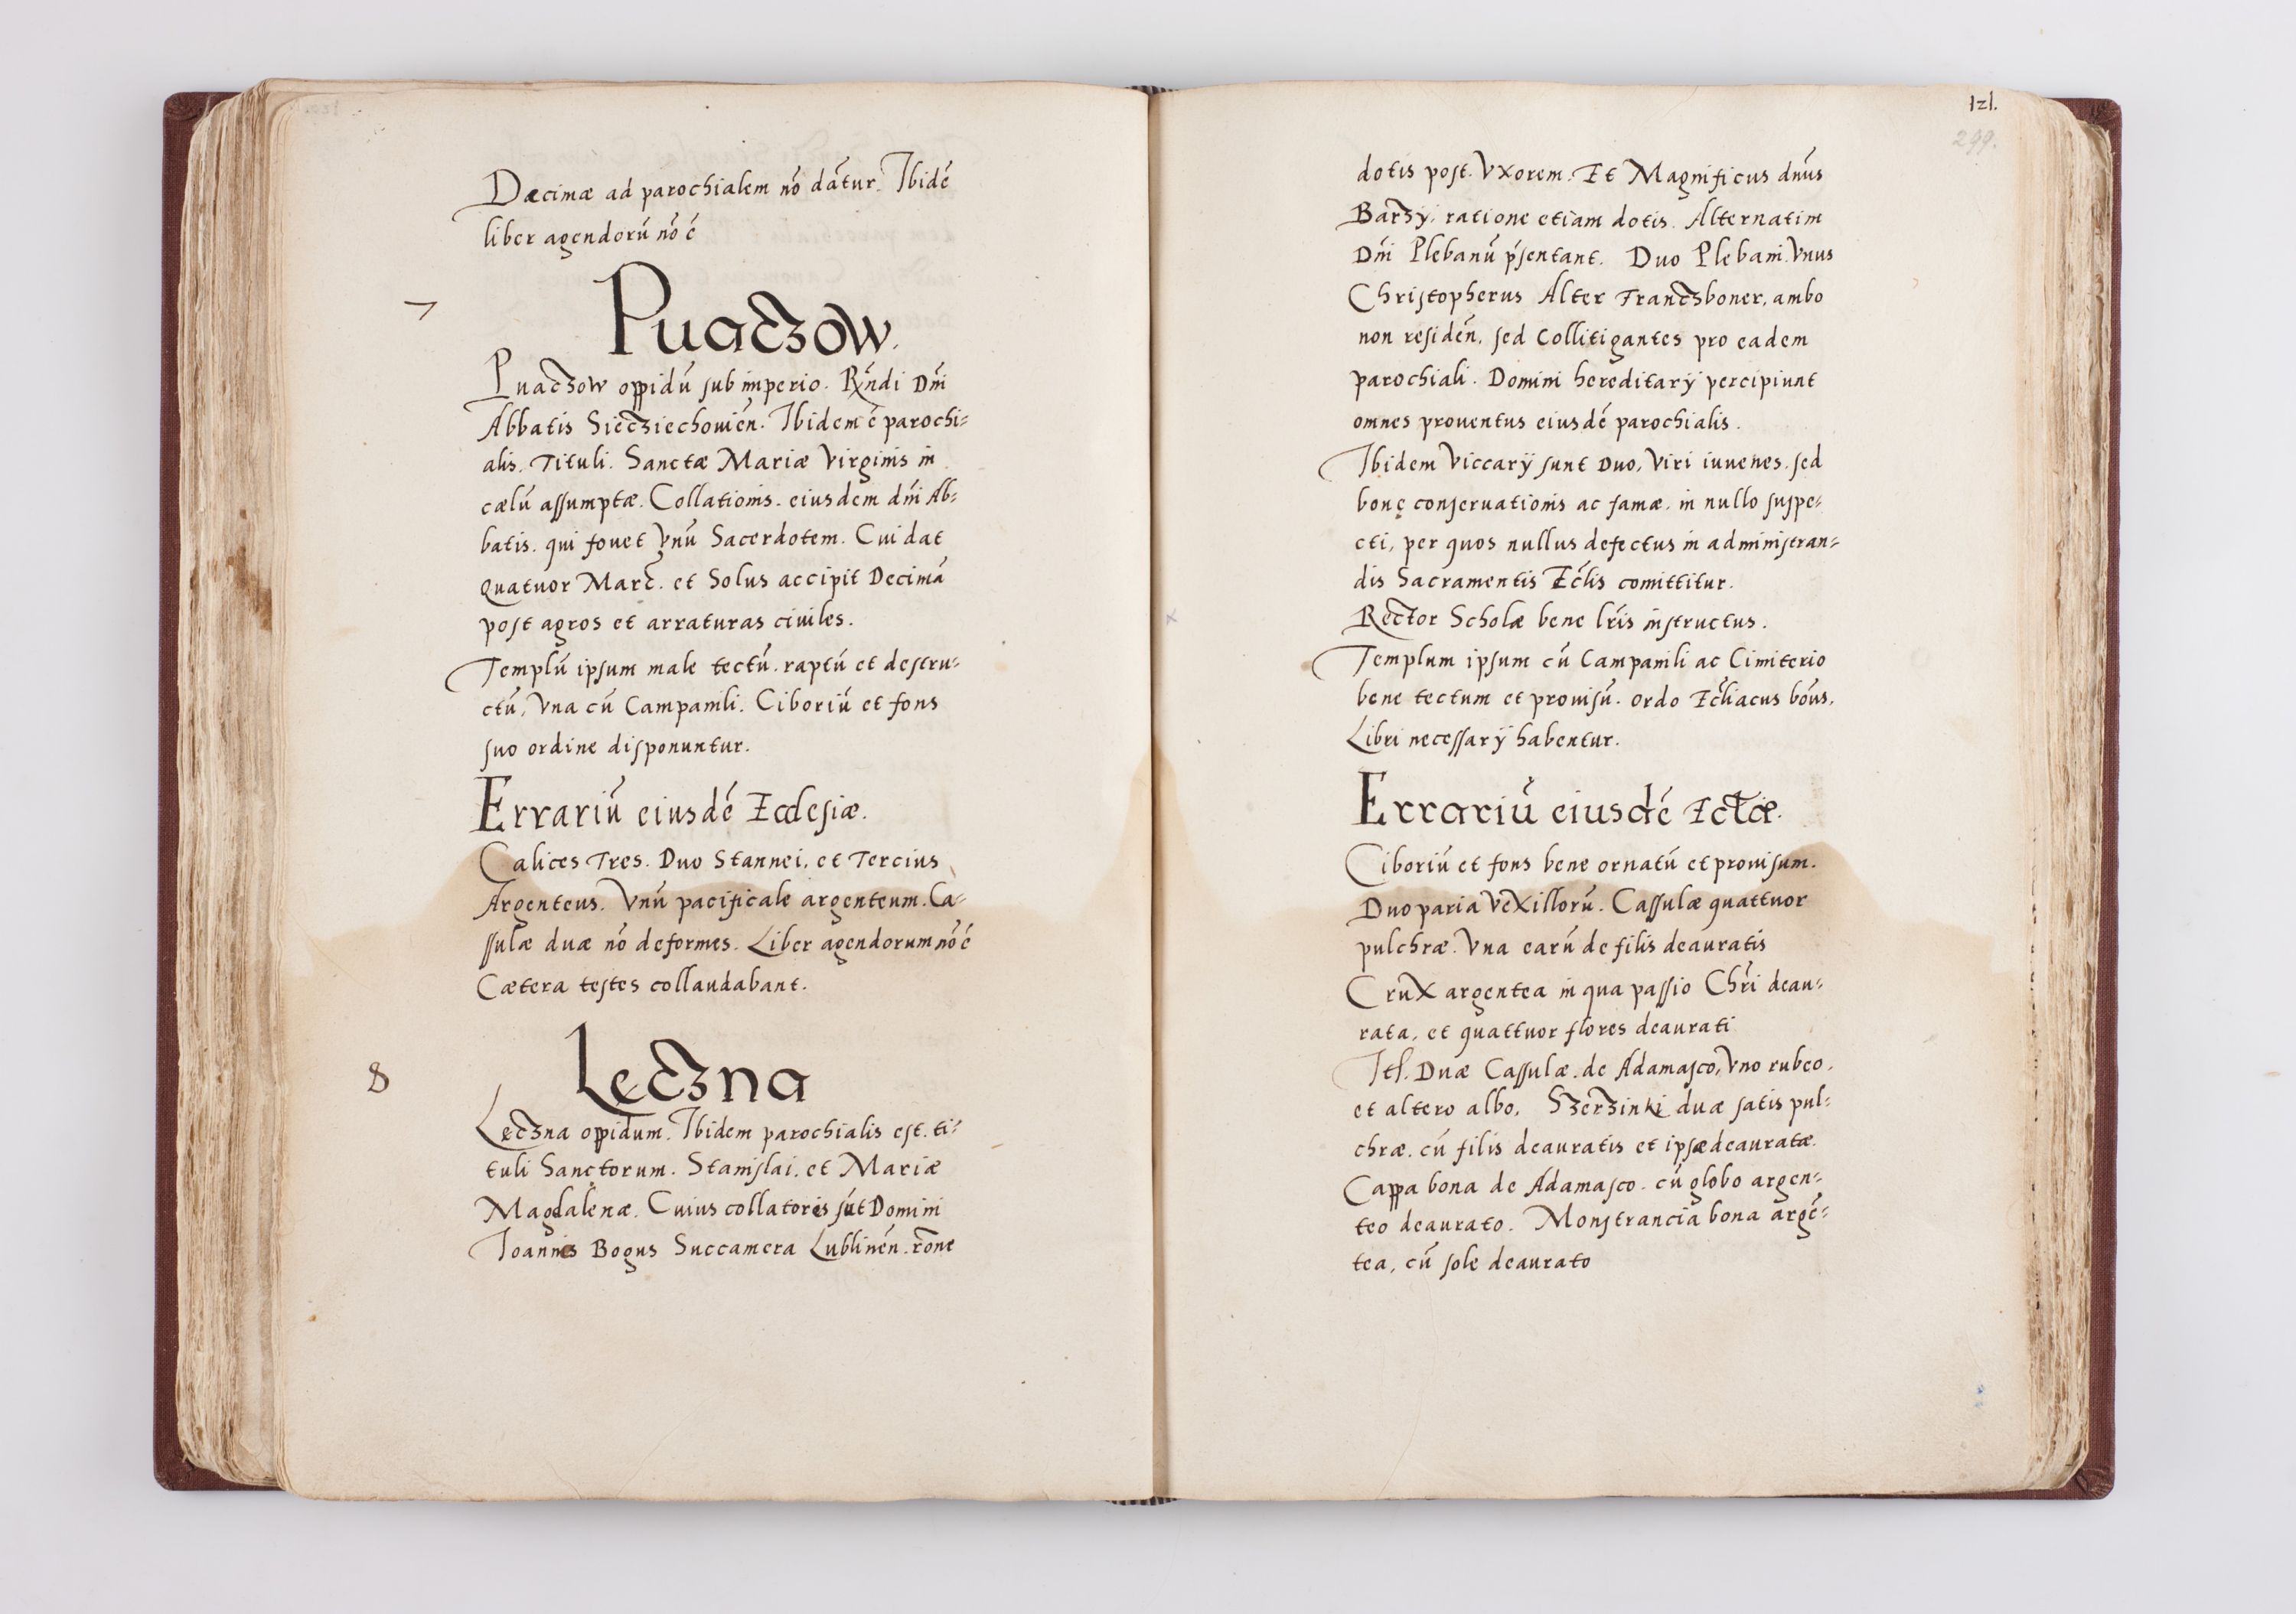 Dæcimæ ad parochialem nō dātur. Ibidē
liber agendorū nō ē
7
Puaczow.
Puaczow oppidū sub imperio. Rñdi Dñi
Abbatis Siecziechouień. Ibidem ē parochi=
alis. Tituli. Sanctæ Mariæ Virginis in
cælū assumptæ. Collationis. eiusdem dñi Ab=
batis. qui fouet Vnū Sacerdotem. Cui dat
quatuor Marc̃. et Solus accipit Decimā
post agros et arraturas ciuiles.
Templū ipsum male tectū. raptū et destru=
ctū, Vna cū Campanili. Ciboriū et fons
suo ordine disponuntur.
Errariū eiusdē Ecclesiæ.
Calices Tres. Duo Stannei, et Tercius
Argenteus. Vnū pacificale argenteum. Ca=
ssulæ duæ nō deformes. Liber agendorum nō ē
Cætera testes collaudabant.
8
Leczna
Leczna oppidum. Ibidem parochialis est. ti=
tuli Sanctorum. Stanislai. et Mariæ
Magdalenæ. Cuius collatores sūt Domini
Ioannes Bogus Succamera Lublinēn. rōne
121.
299.
dotis post. Vxorem. Et Magnificus dñus
Barzÿ. ratione etiam dotis. Alternatim
Dñi Plebanū p̄sentant. Duo Plebani. Vnus
Christopherus Alter Franczboner, ambo
non residēn, sed Collitigantes pro eadem
parochiali. Domini hereditarÿ percipiunt
omnes prouentus eiusdē parochialis.
Ibidem Viccarÿ sunt Duo, Viri iuuenes. sed
bonę conseruationis ac famæ. in nullo suspe=
cti, per quos nullus defectus in administran=
dis Sacramentis Ecl̃is comittitur.
Rector Scholæ bene lr̃is instructus.
Templum ipsum cū Campanili ac Cimiterio
bene tectum et prouisū. Ordo Ecl̃iacus bōus.
Libri necessarÿ habentur.
Errariū eiusdē Ecl̃iæ.
Ciboriū et fons bene ornatū et prouisum.
Duo paria VeXillorū. Cassulæ quattuor
pulchræ. Vna earū de filis deauratis
CruX argentea in qua passio Chr̃i deau=
rata, et quattuor flores deaurati
Itł. Duæ Cassulæ. de Adamasco, Vno rubeo.
et altero albo. Szerzinki duæ satis pul=
chræ. cū filis deauratis et ipsæ deauratæ.
Cappa bona de Adamasco. cū globo argen=
teo deaurato. Monstrancia bona argē=
tea, cū sole deaurato